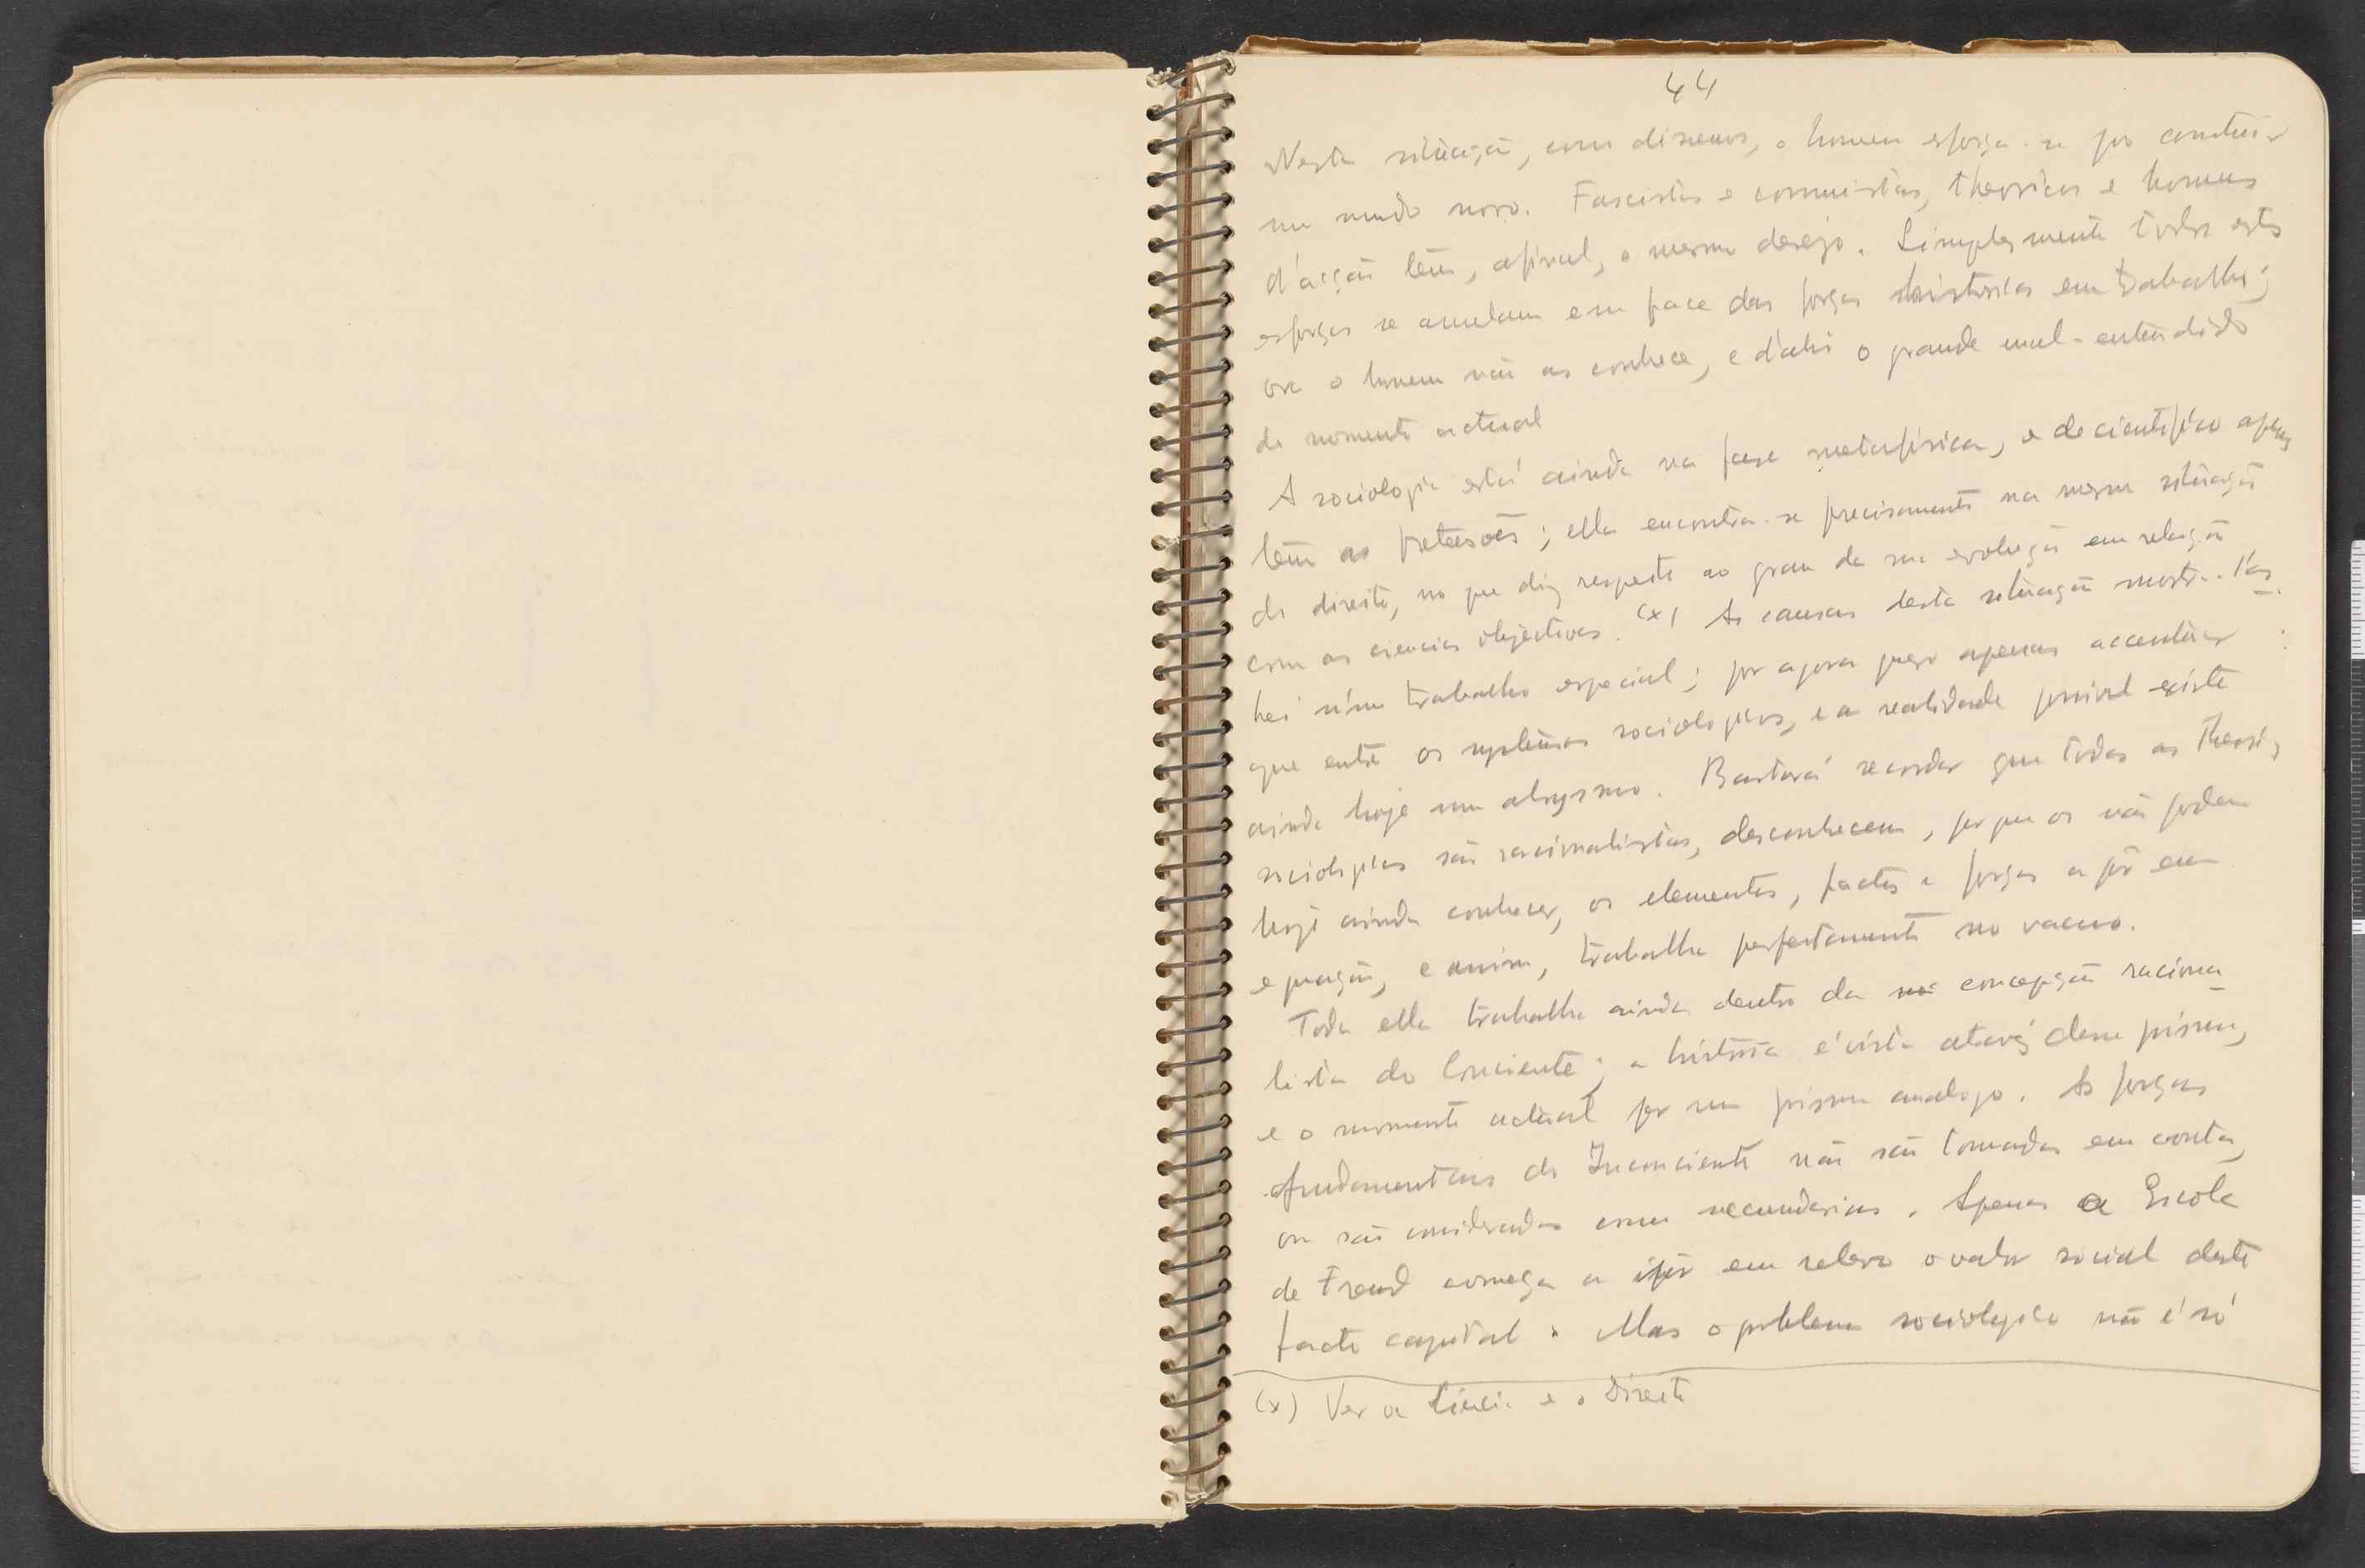 44
Nesta situação, como dissemos, o homem esforça-se por construir
um mundo novo. Fascistas e comunistas, theoricos e homens
d'acção têm, afinal, o mesmo desejo. Simplesmente todos estes
esforços se anulam em face das forças historicas em trabalho;
ora o homem não as conhece, e d'ahi o grande mal-entendido
do momento actual
A sociologia está ainda na fase metafisica, e de cientifico apenas
tem as pretensões; ella encontra-se precisamente na mesma situação
do direito, no que diz respeito ao grau da sua evolução em relação
com as ciencias objectivas. (x) As causas desta situação mostra-l'as
hei n'um trabalho especial; por agora quero apenas accentuar
que entre os systemas sociologicos, e a realidade possivel existe
ainda hoje um abysmo. Bastará recordar que todas as theorias
sociologicas são racionalistas, desconhecem, porque os não podem
hoje ainda conhecer, os elementos, factos e forças a pôr em
equação, e assim, trabalha perfeitamente no vacuo.
Toda ella trabalha ainda dentro da concepção raciona
lista do Conciente; a historia é vista atravez desse prisma,
e o momento actual por um prisma analogo. As forças
fundamentais do Inconciente não são tomadas em conta,
ou são consideradas como secundarias. Apenas a Escola
de Freud começa a pôr em relevo o valor social deste
facto capital. Mas o problema sociologico não é só
(x) Ver a Ciencia e o Direito